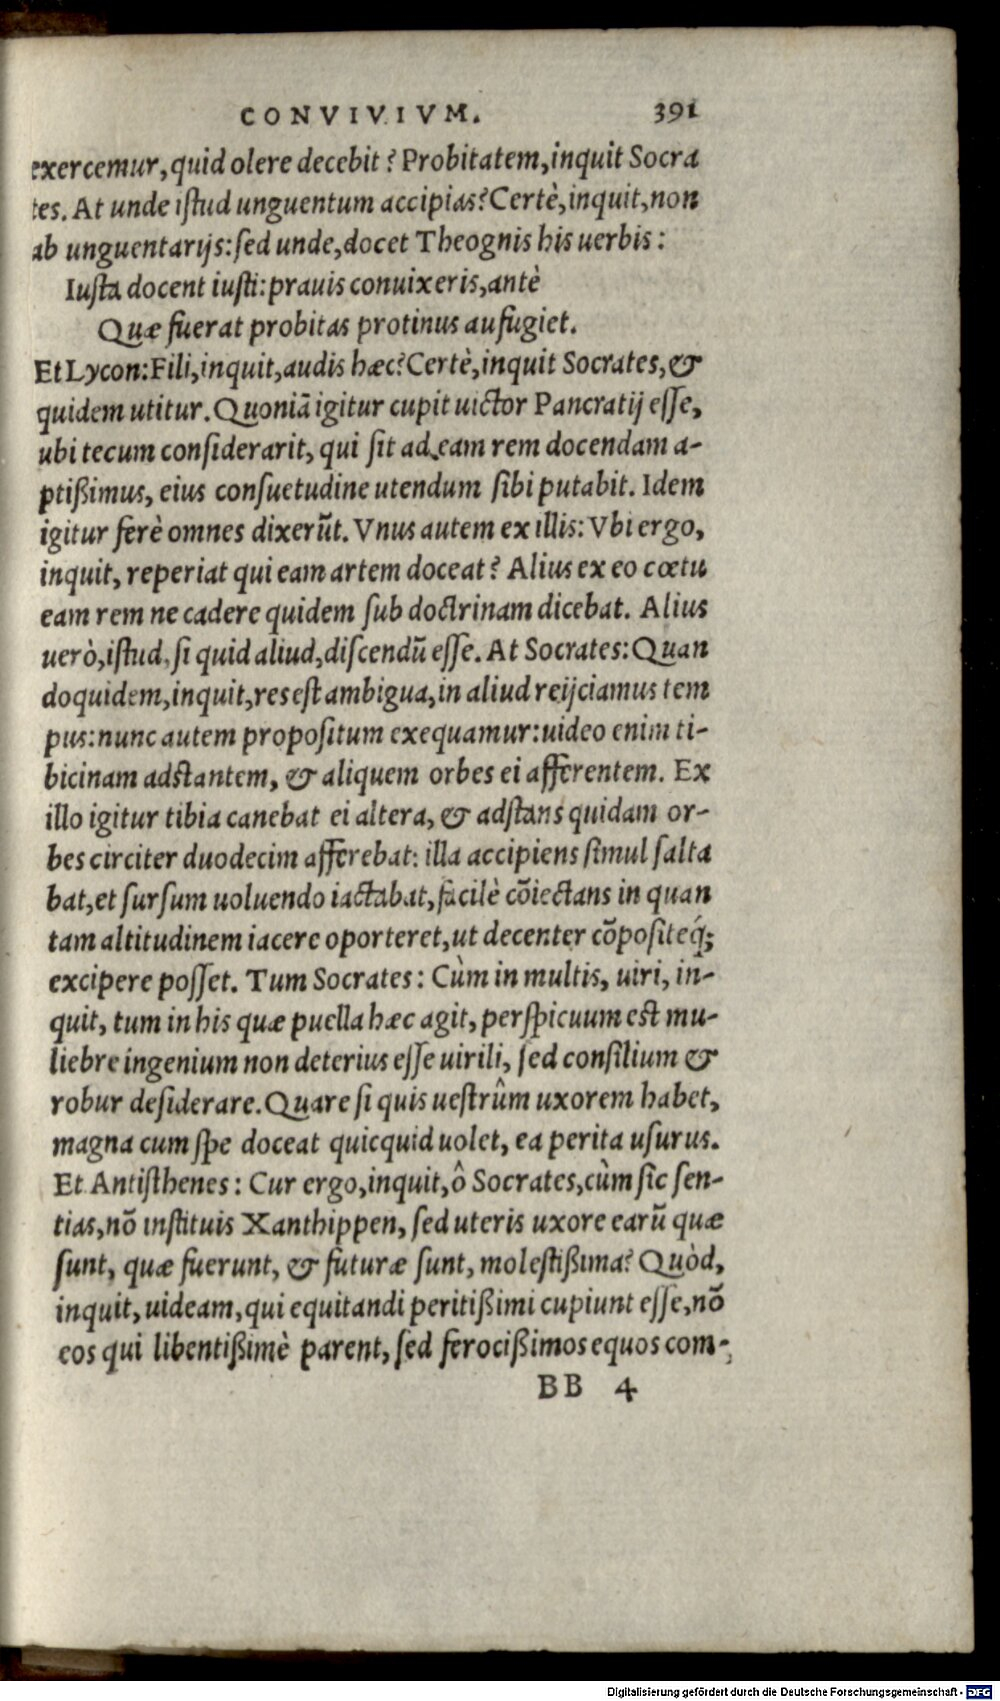 CONVIVIVM. 391
exercemur, quid olere decebit? Probitatem, inquit Socra
tes. At unde istud unguentum accipias? Certè, inquit, non
ab unguentarijs: sed unde, docet Theognis his uerbis:
Iusta docent iusti: prauis conuixeris, antè
Quæ fuerat probitas protinus aufugiet.
Et Lycon: Fili, inquit, audis hæc? Certè, inquit Socrates, &
quidem utitur. Quoniā igitur cupit uictor Pancratij esse,
ubi tecum considerarit, qui sit ad eam rem docendam a-
ptißimus, eius consuetudine utendum sibi putabit. Idem
igitur ferè omnes dixerūt. Vnus autem ex illis: Vbi ergo,
inquit, reperiat qui eam artem doceat? Alius ex eo cœtu
eam rem ne cadere quidem sub doctrinam dicebat. Alius
uerò, istud, si quid aliud, discendū esse. At Socrates: Quan
doquidem, inquit, res est ambigua, in aliud reijciamus tem
pus: nunc autem propositum exequamur: uideo enim ti-
bicinam adstantem, & aliquem orbes ei afferentem. Ex
illo igitur tibia canebat ei altera, & adstans quidam or-
bes circiter duodecim afferebat: illa accipiens simul salta
bat, et sursum uoluendo iactabat, facilè cōiectans in quan
tam altitudinem iacere oporteret, ut decenter cōpositeq́;
excipere posset. Tum Socrates: Cùm in multis, uiri, in-
quit, tum in his quæ puella hæc agit, perspicuum est mu-
liebre ingenium non deterius esse uirili, sed consilium &
robur desiderare. Quare si quis uestrûm uxorem habet,
magna cum spe doceat quicquid uolet, ea perita usurus.
Et Antisthenes: Cur ergo, inquit, ô Socrates, cùm sic sen-
tias, nō instituis Xanthippen, sed uteris uxore earū quæ
sunt, quæ fuerunt, & futuræ sunt, molestißima? Quòd,
inquit, uideam, qui equitandi peritißimi cupiunt esse, nō
eos qui libentißimè parent, sed ferocißimos equos com-
BB 4
Digitalisierung gefördert durch die Deutsche Forschungsgemeinschaft - DFG